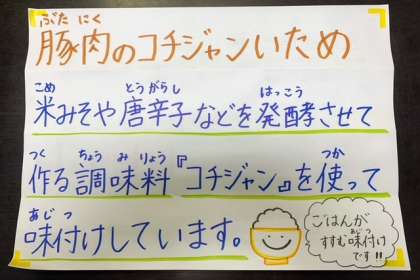 ぶた にく
豚肉のコチジャンいため
こめ とうがらし はっこう
米みそや唐辛子などを発酵させて
つく ちょう み りょう つか
作る調味料『コチジャン』を使って
あじ つ
味付けしています。
ごはんが
あじつ
すすむ味付け
です!!